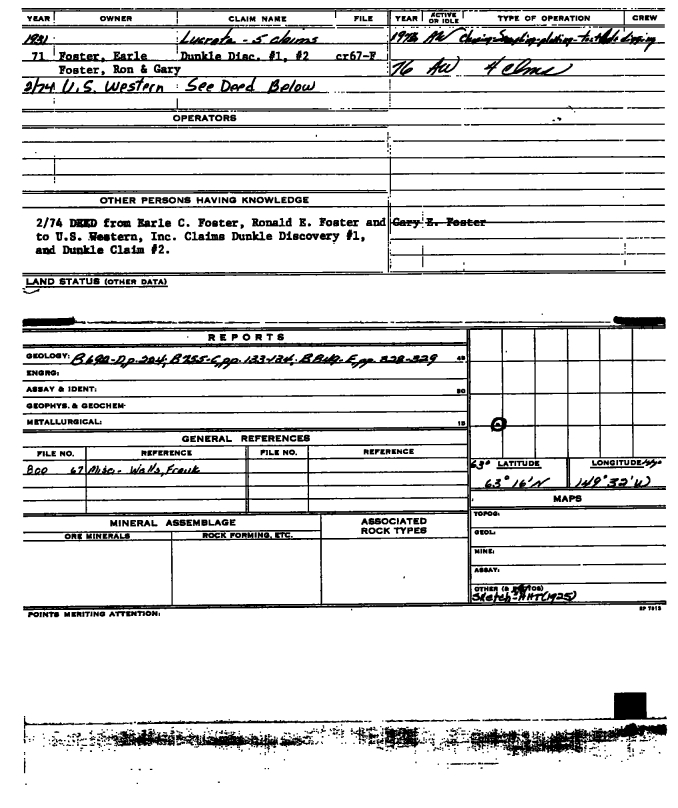 YEAR OWNER CLAIM NAME FILE YEAR ACTIVE OR IDLE TYPE OF OPERATION CREW
1931 Lucrata - 5 claims 1972 AW
71 Foster, Earle Dunkle Disc. #1, #2 cr67-F
Foster, Ron & Gary 76 AW 4 clms
2/74 U.S. Western See Deed Below
OPERATORS
OTHER PERSONS HAVING KNOWLEDGE
2/74 DEED from Earle C. Foster, Ronald E. Foster and Gary E. Foster
to U.S. Western, Inc. Claims Dunkle Discovery #1,
and Dunkle Claim #2.
LAND STATUS (OTHER DATA)
REPORTS
GEOLOGY: B692-D, p. 204; B755-C, pp. 133-134; B849-E, pp. 328-329 45
ENGRG:
ASSAY & IDENT: 30
GEOPHYS. & GEOCHEM-
METALLURGICAL: 15
GENERAL REFERENCES
FILE NO. REFERENCE FILE NO. REFERENCE
800 67 Misc - Walls, Frank
63° LATITUDE LONGITUDE
63° 16' N 149° 32' W
MAPS
MINERAL ASSEMBLAGE ASSOCIATED ROCK TYPES
ORE MINERALS ROCK FORMING, ETC.
TOPOG:
GEOL:
MINE:
ASSAY:
OTHER (& PHOTOS)
Sketch - HHT (1925)
POINTS MERITING ATTENTION: